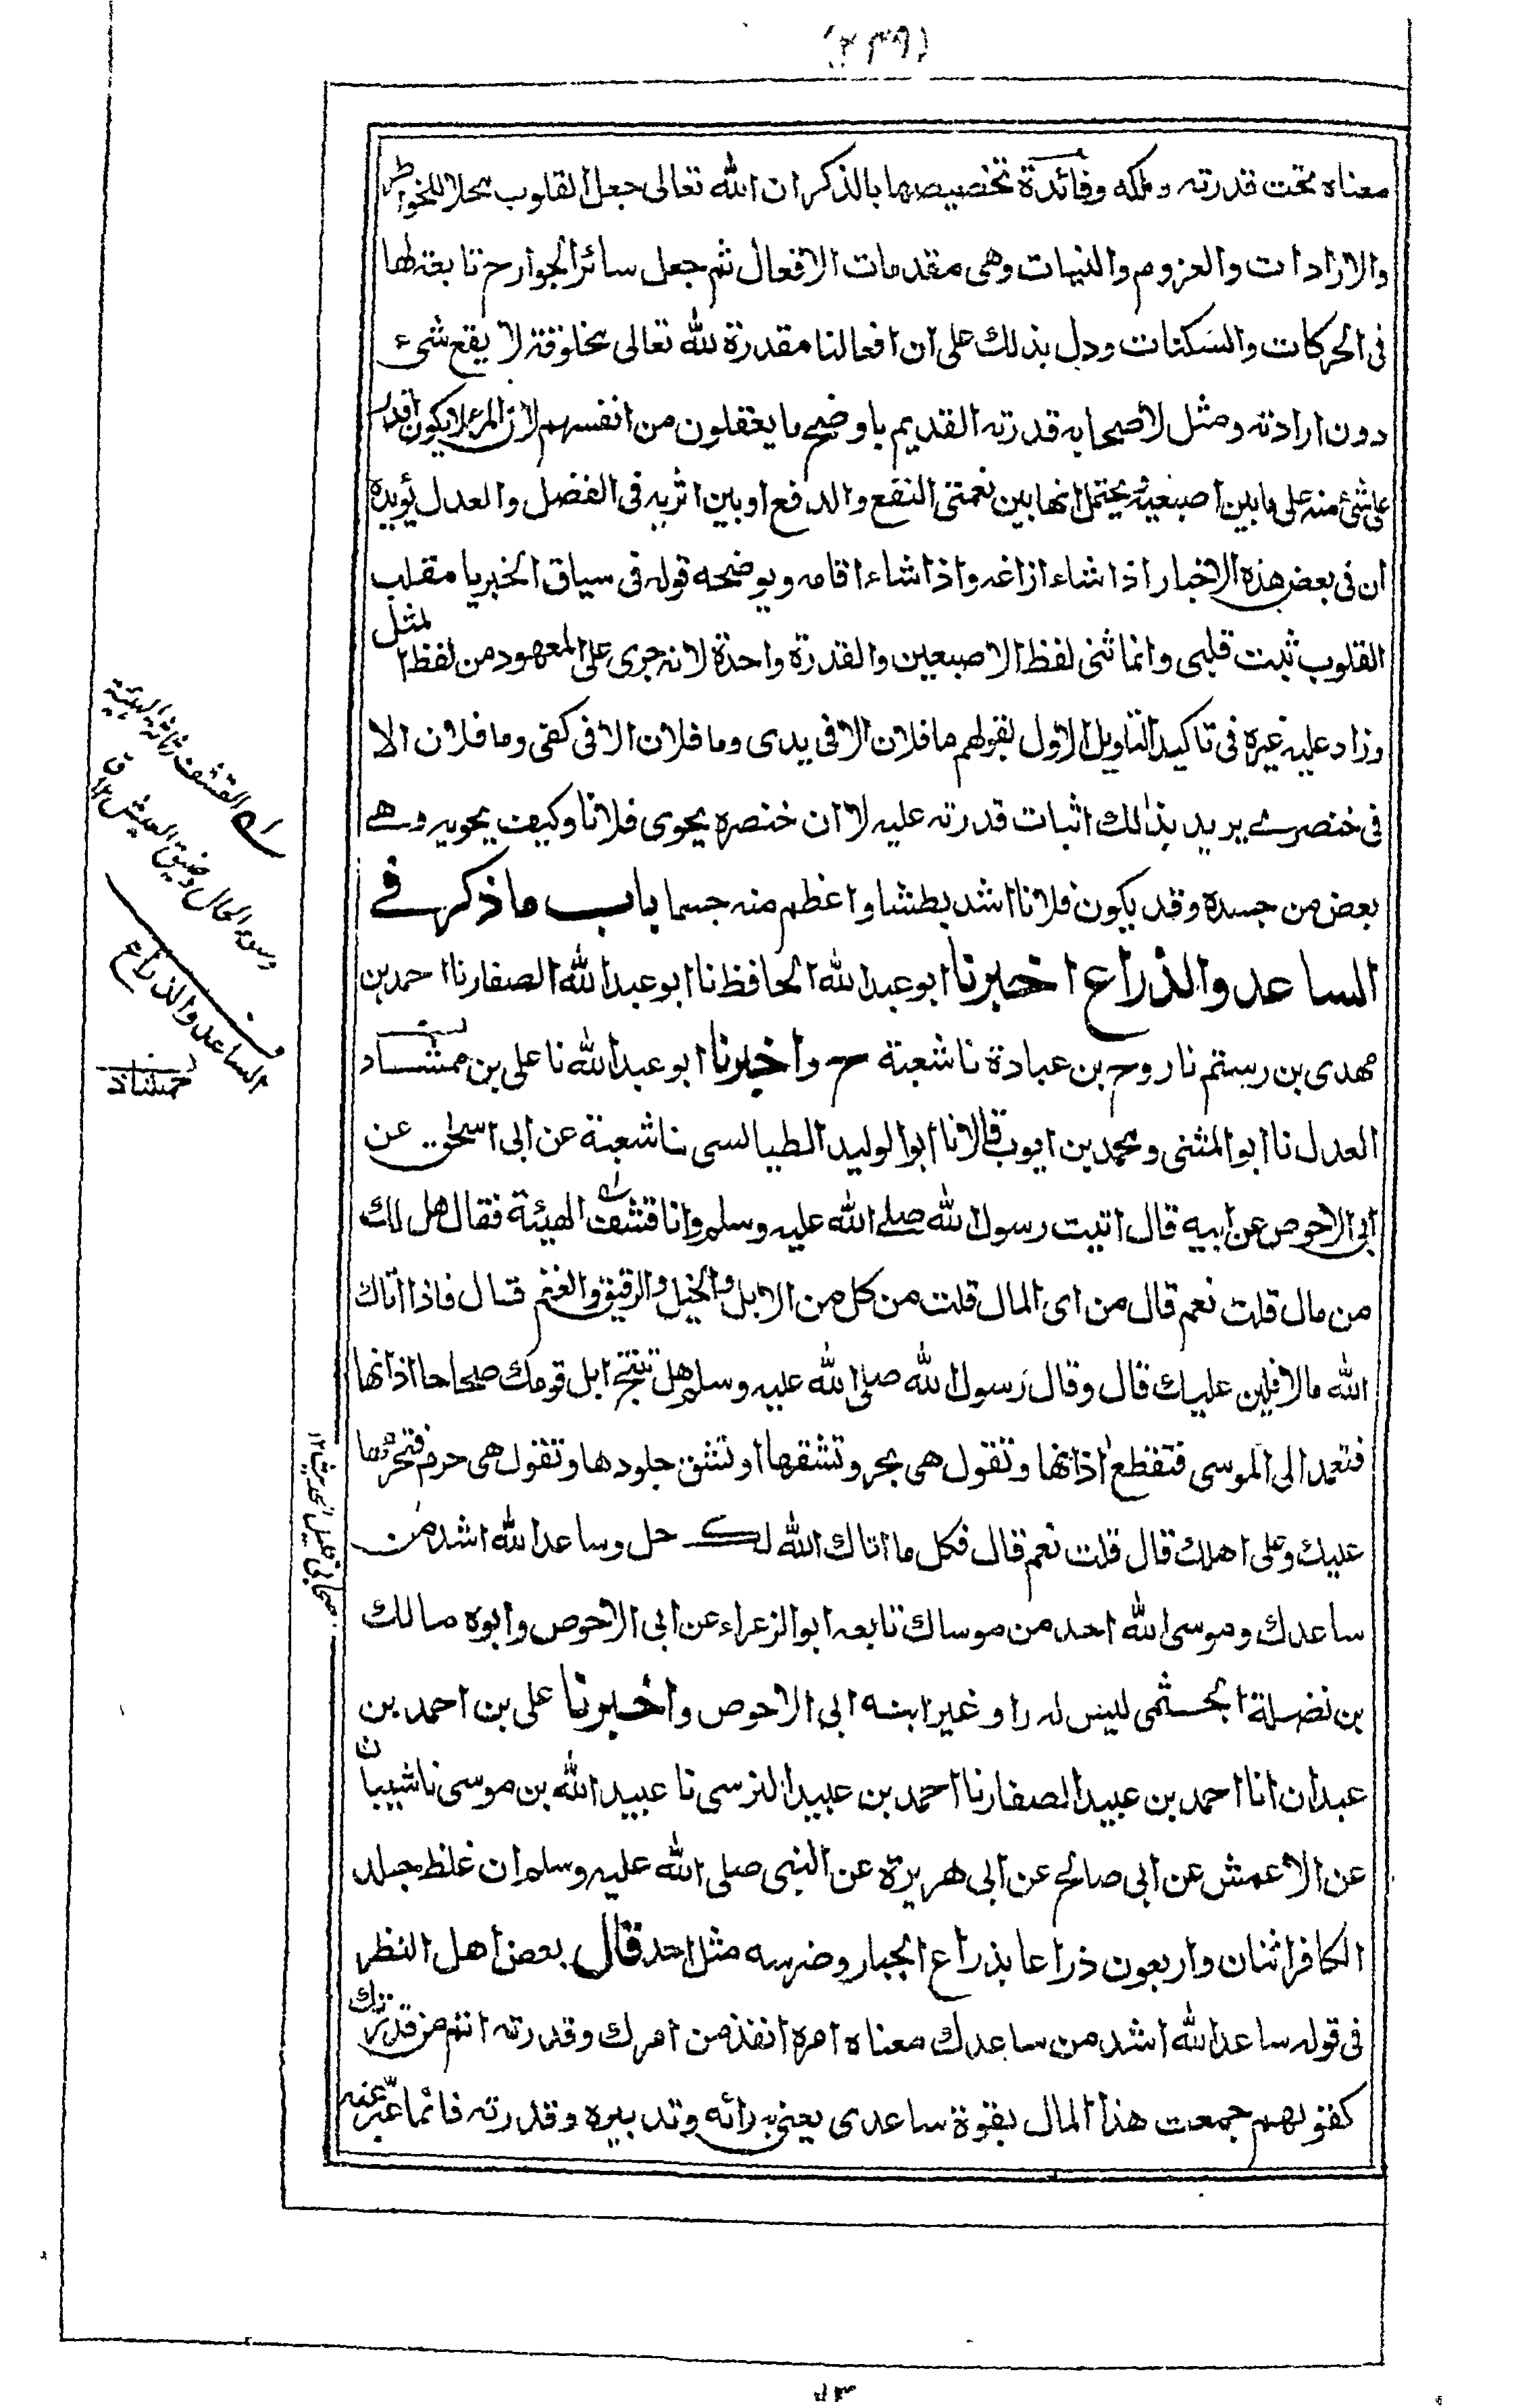 (٢٤٩)
معناه تحت قدرته وملكه وفائدة تخصيصها بالذكر ان الله تعالى جعل القلوب محلا للخواطر
والارادات والعزوم والنيات وهى مقدمات الافعال ثم جعل سائر الجوارح تابعة لها
فى الحركات والسكنات ودل بذلك على ان افعالنا مقدرة لله تعالى مخلوقة لا يقع شىء
دون ارادته ومثل لاصحابه قدرته القديم باوضح ما يعقلون من انفسهم لان المرء لا يكون اقدر
على شئ منه على ما بين اصبعيه يحتمل انها بين نعمتى النفع والدفع او بين اثريه فى الفضل والعدل يؤيده
ان فى بعض هذه الاخبار اذا شاء ازاغه واذا شاء اقامه ويوضحه قوله فى سياق الخبر يا مقلب
القلوب ثبت قلبى وانما ثنى لفظ الاصبعين والقدرة واحدة لانه جرى على المعهود من لفظ المثل
وزاد عليه غيره فى تاكيد التاويل الاول بقولهم ما فلان الا فى يدى وما فلان الا فى كفى وما فلان الا
فى خنصرے يريد بذالك اثبات قدرته عليه لا ان خنصره يحوى فلانا وكيف يحويه وهے
بعض من جسده وقد يكون فلانا اشد بطشا واعظم منه جسما باب ما ذكر فے
الساعد والذراع اخبرنا ابو عبد الله الحافظ نا ابو عبد الله الصفار نا احمد بن
مهدى بن رستم نا روح بن عبادة نا شعبة ح واخبرنا ابو عبد الله نا على بن ممشاد
العدل نا ابو المثنى ومحمد بن ايوب قالا نا ابو الوليد الطيالسى نا شعبة عن ابى اسحق عن
ابى الاحوص عن ابيه قال اتيت رسول الله صلے الله عليه وسلم وانا قشف الهيئة فقال هل لك
من مال قلت نعم قال من اى المال قلت من كل من الابل والخيل والرقيق والغنم قال فاذا اتاك
الله مالا فلين عليك قال وقال رسول الله صلى الله عليه وسلم هل تنتج ابل قومك صحاحا اذانها
فتعمد الى الموسى فتقطع اذانها وتقول هى بحر وتشقها او تشق جلودها وتقول هى حرم فتحرمها
عليك وعلى اهلك قال قلت نعم قال فكل ما اتاك الله لك حل وساعد الله اشد من
ساعدك وموسى الله احد من موساك تابعه ابو الزعراء عن ابى الاحوص وابوه مالك
بن نضلة الجشمى ليس له راو غير ابنه ابى الاحوص واخبرنا على بن احمد بن
عبدان انا احمد بن عبيد الصفار نا احمد بن عبيد النرسى نا عبيد الله بن موسى نا شيبان
عن الاعمش عن ابى صالح عن ابى هريرة عن النبى صلى الله عليه وسلم ان غلظ جلد
الكافر اثنان واربعون ذراعا بذراع الجبار وضرسه مثل احد قال بعض اهل النظر
فى قوله ساعد الله اشد من ساعدك معناه امره انفذ من امرك وقدرته اتم من قدرتك
كقولهم جمعت هذا المال بقوة ساعدى يعنى به رائه وتدبيره وقدرته فانما عبر عنه
القشف رثاثة الهيئة
وسوء الحال وضيق العيش ١٢ ق
الساعد والذراع
حمشاذ
صحابى قليل الحديث ١٢